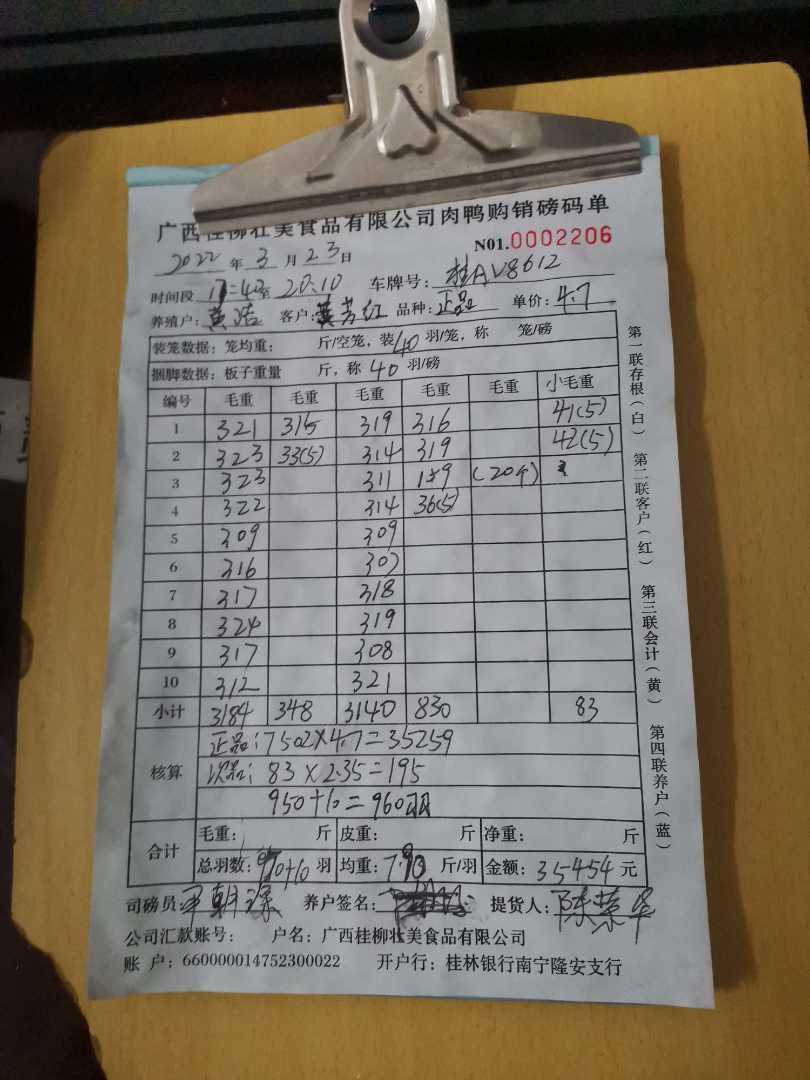 广西桂柳壮美食品有限公司肉鸭购销磅码单
N01.0002206
2022年3月23日
时间段 17:40至20:10 车牌号:桂AV8612
养殖户:黄洁 客户:黄芳红 品种:正品 单价:4.7
装笼数据:笼均重: 斤/空笼,装40羽/笼,称 笼/磅
捆脚数据:板子重量 斤,称40羽/磅
编号 毛重 毛重 毛重 毛重 毛重 小毛重
1 321 315 319 316 41(5)
2 323 33(5) 314 319 42(5)
3 323 311 159 (20个)
4 322 314 36(5)
5 309 309
6 316 307
7 317 318
8 324 319
9 317 308
10 312 321
小计 3184 348 3140 830 83
核算
正品:7502×4.7=35259
次品:83×2.35=195
950+10=960羽
合计
毛重: 斤 皮重: 斤 净重: 斤
总羽数:950+10羽 均重:7.90斤/羽 金额:35454元
司磅员: 养户签名: 提货人:陈荣华
公司汇款账号: 户名:广西桂柳壮美食品有限公司
账 户:660000014752300022 开户行:桂林银行南宁隆安支行
第一联存根(白) 第二联客户(红) 第三联会计(黄) 第四联养户(蓝)